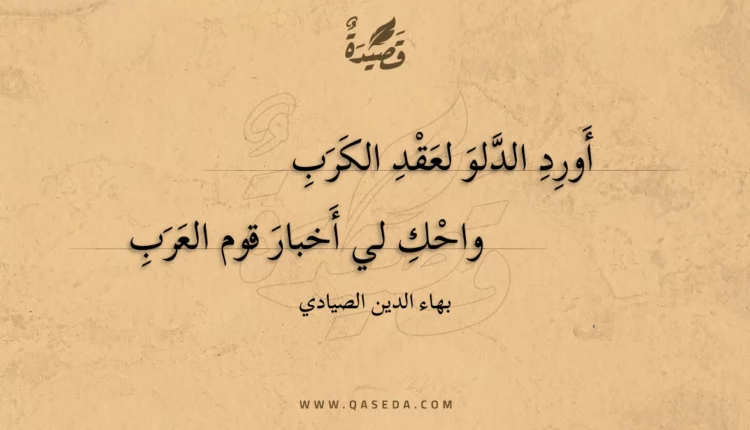 قَصِيْدَةٌ
أَورِدِ الدَّلوَ لعَقْدِ الكَرَبِ
واحْكِ لي أَخبارَ قوم العَرَبِ
بهاء الدين الصيادي
WWW.QASEDA.COM